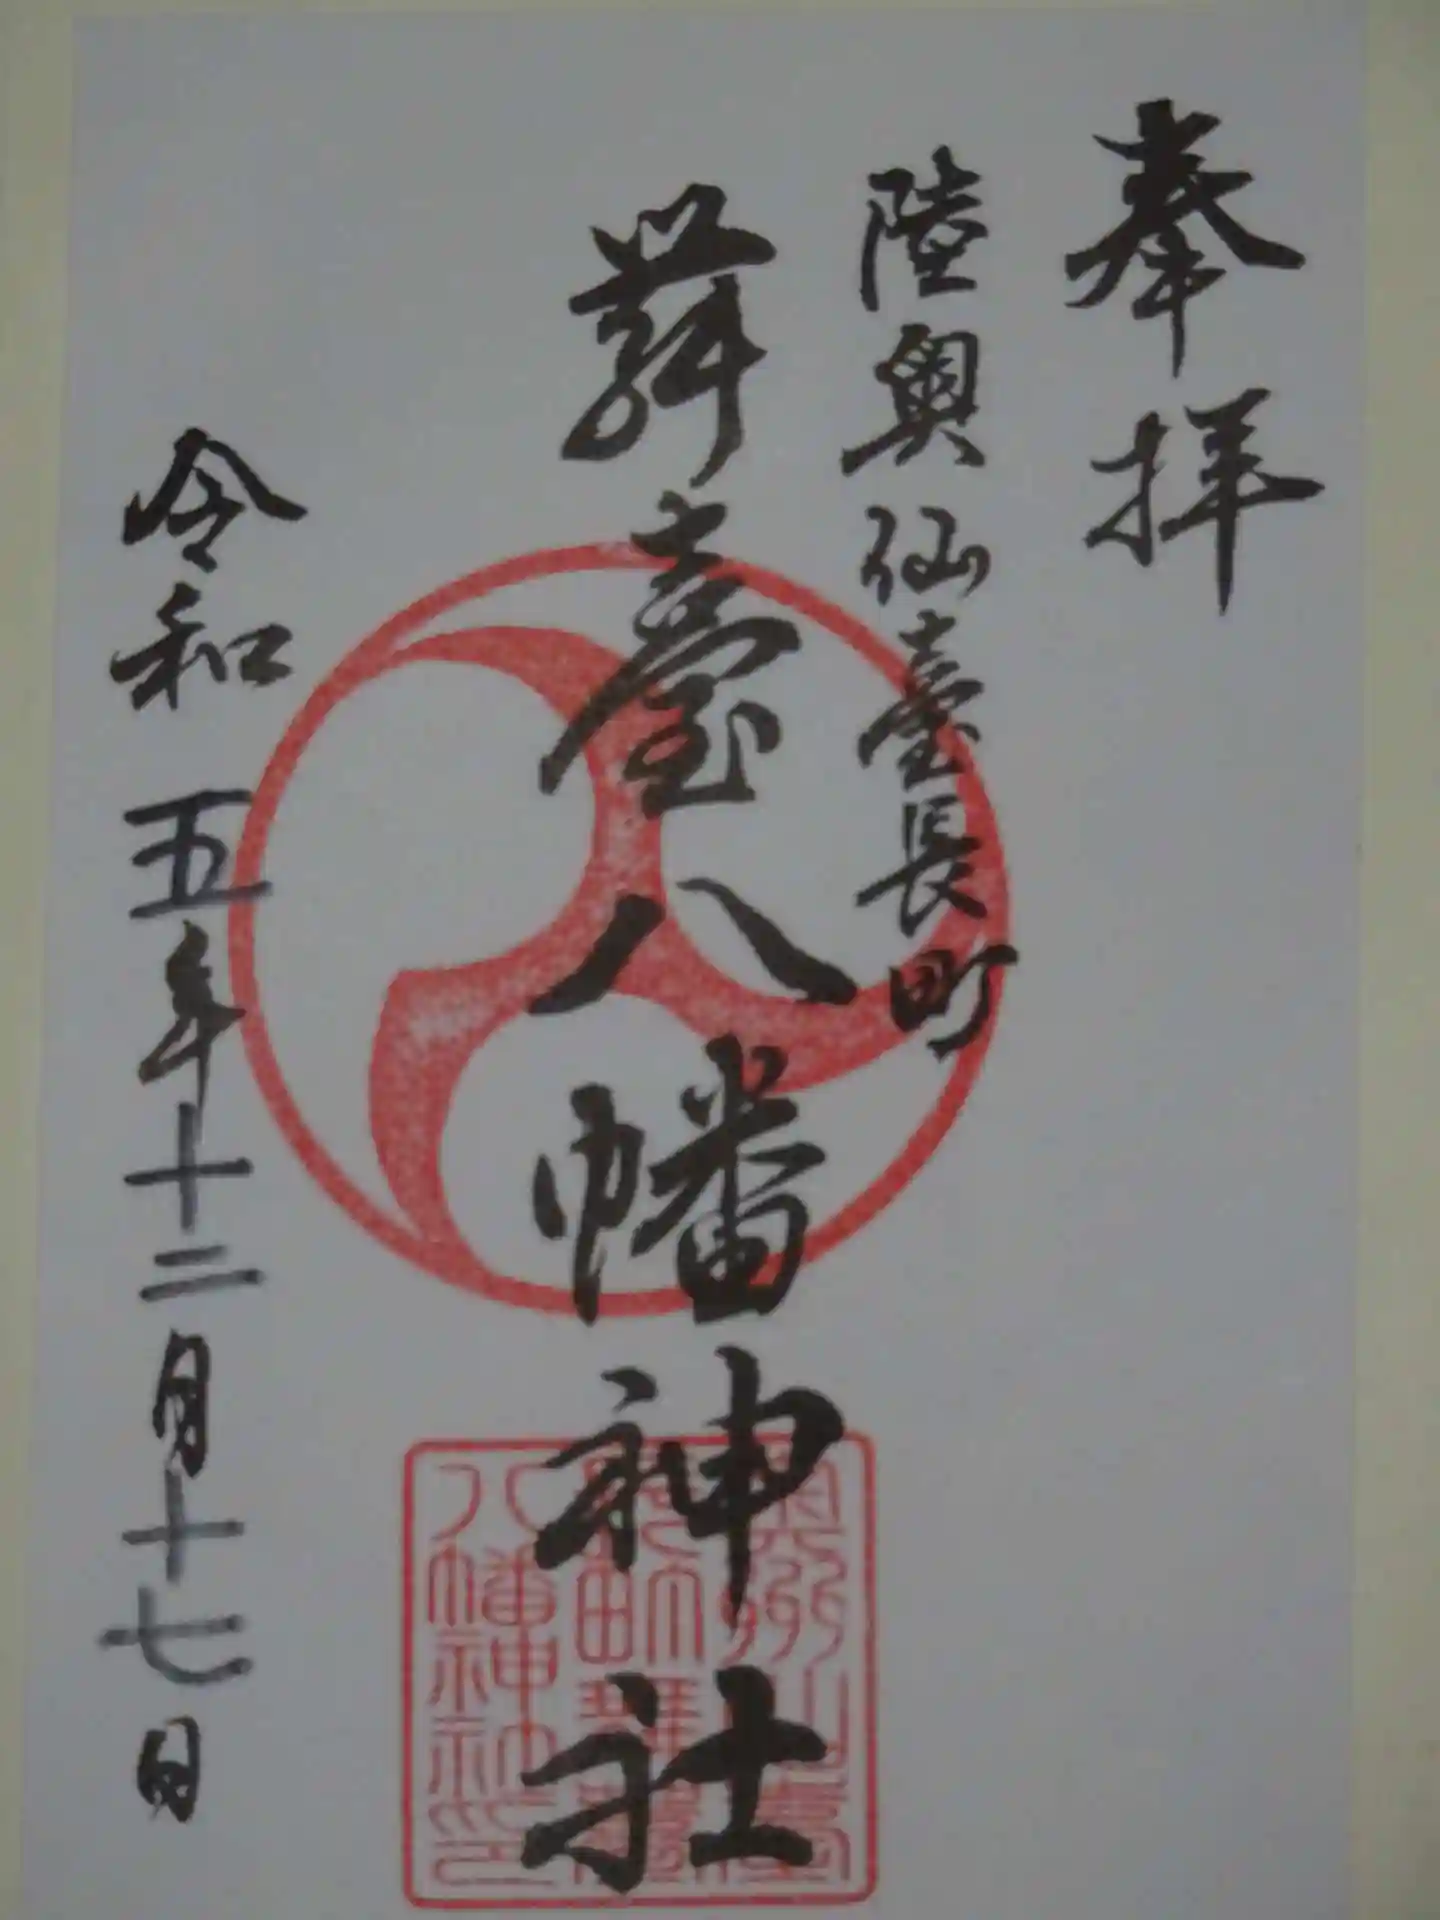 奉拝
陸奥仙臺長町
舞臺八幡神社
令和五年十二月十七日
八幡神社印